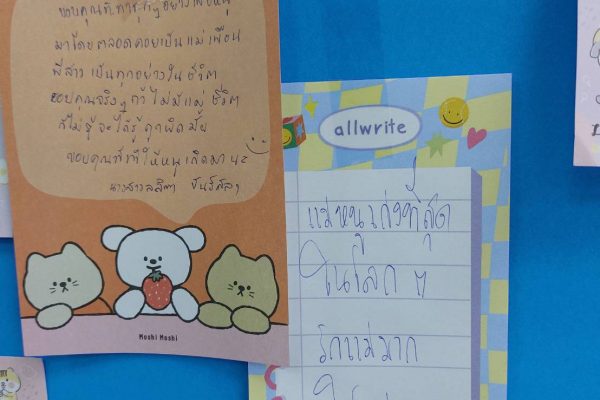 ขอบคุณที่ทำทุกอย่างเพื่อหนู
มาโดยตลอดคอยเป็นแม่เพื่อน
พี่สาว เป็นทุกอย่างในชีวิต
ขอบคุณจริงๆ ถ้าไม่มีแม่ ชีวิต
ก็ไม่รู้จะได้รู้ถูกผิดมั้ย
ขอบคุณที่ทำให้หนูเกิดมานะ
นางสาวลลิตา
Moshi Moshi
allwrite
แม่หนูเก่งที่สุด
ในโลก ๆ
รักแม่มาก